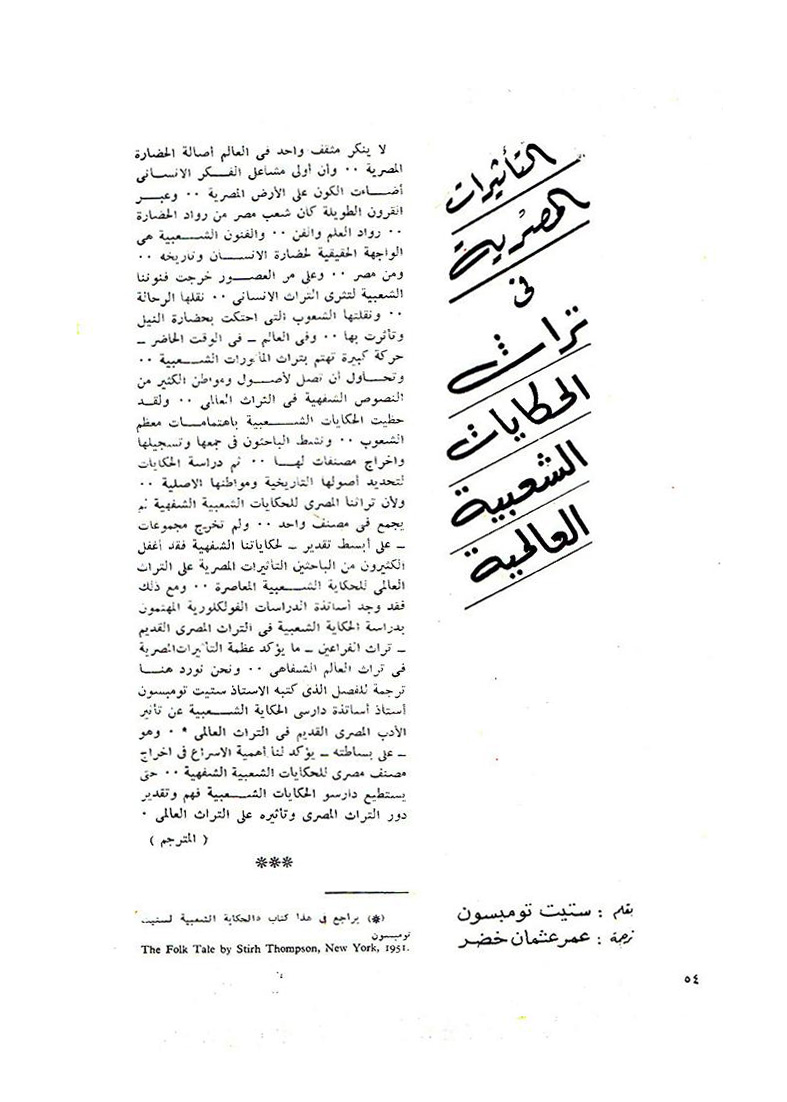 التأثيرات
المصرية
فى
تراث
الحكايات
الشعبية
العالمية
بقلم : ستيت تومبسون
ترجمة : عمر عثمان خضر
لا ينكر مثقف واحد فى العالم أصالة الحضارة
المصرية ٠٠ وأن أولى مشاعل الفـكر الانسانى
أضـاءت الكون على الأرض المصرية ٠٠ وعبـر
القرون الطويلة كان شعب مصر من رواد الحضارة
٠٠ رواد العلم والفن ٠٠ والفنون الشـعبية هى
الواجهة الحقيقية لحضارة الانسـان وتاريخه ٠٠
ومن مصر ٠٠ وعلى مر العصـور خرجت فنوننا
الشعبية لتثرى التراث الانسانى ٠٠ نقلها الرحالة
٠٠ ونقلتها الشعوب التى احتكت بحضارة النيل
وتأثرت بها ٠٠ وفى العالم ـ فى الوقت الحاضر ـ
حركة كبيرة تهتم بتراث المأثورات الشـعبية ٠٠
وتحـاول أن تصل لأصـول ومواطن الكثير من
النصوص الشفهية فى التراث العالمى ٠٠ ولقـد
حظيت الحكايات الشـعبية باهتمامـات معظم
الشعوب ٠٠ ونشط الباحثون فى جمعها وتسجيلها
واخراج مصنفات لهـا ٠٠ ثم دراسة الحكايات
لتحديد أصولها التاريخية ومواطنها الاصلية ٠٠
ولأن تراثنا المصرى للحكايات الشعبية الشفهية لم
يجمع فى مصنف واحد ٠٠ ولم تخرج مجموعات
ـ على أبسط تقدير ـ لحكاياتنا الشفهية فقد أغفل
الكثيرون من الباحثين التأثيرات المصرية على التراث
العالمى للحكاية الشـعبية المعاصرة ٠٠ ومع ذلك
فقد وجد أساتذة الدراسات الفولكلورية المهتمون
بدراسة الحكاية الشعبية فى التراث المصرى القديم
ـ تراث الفراعين ـ ما يؤكد عظمة التأثيرات المصرية
فى تراث العالم الشفاهى ٠٠ ونحن نورد هنـا
ترجمة للفصل الذى كتبه الاستاذ ستيت تومبسون
أستاذ أساتذة دارسى الحكاية الشـعبية عن تأثير
الأدب المصرى القديم فى التراث العالمى * ٠ وهو
ـ على بساطته ـ يؤكد لنا أهمية الاسراع فى اخراج
مصنف مصرى للحكايات الشعبية الشفهية ٠٠ حتى
يستطيع دارسو الحكايات الشـعبية فهم وتقدير
دور التراث المصرى وتأثيره على التراث العالمى ٠
( المترجم )
***
(*) يراجع فى هذا كتاب «الحكاية الشعبية لستيت
تومبسون
The Folk Tale by Stirh Thompson, New York, 1951.
٥٤